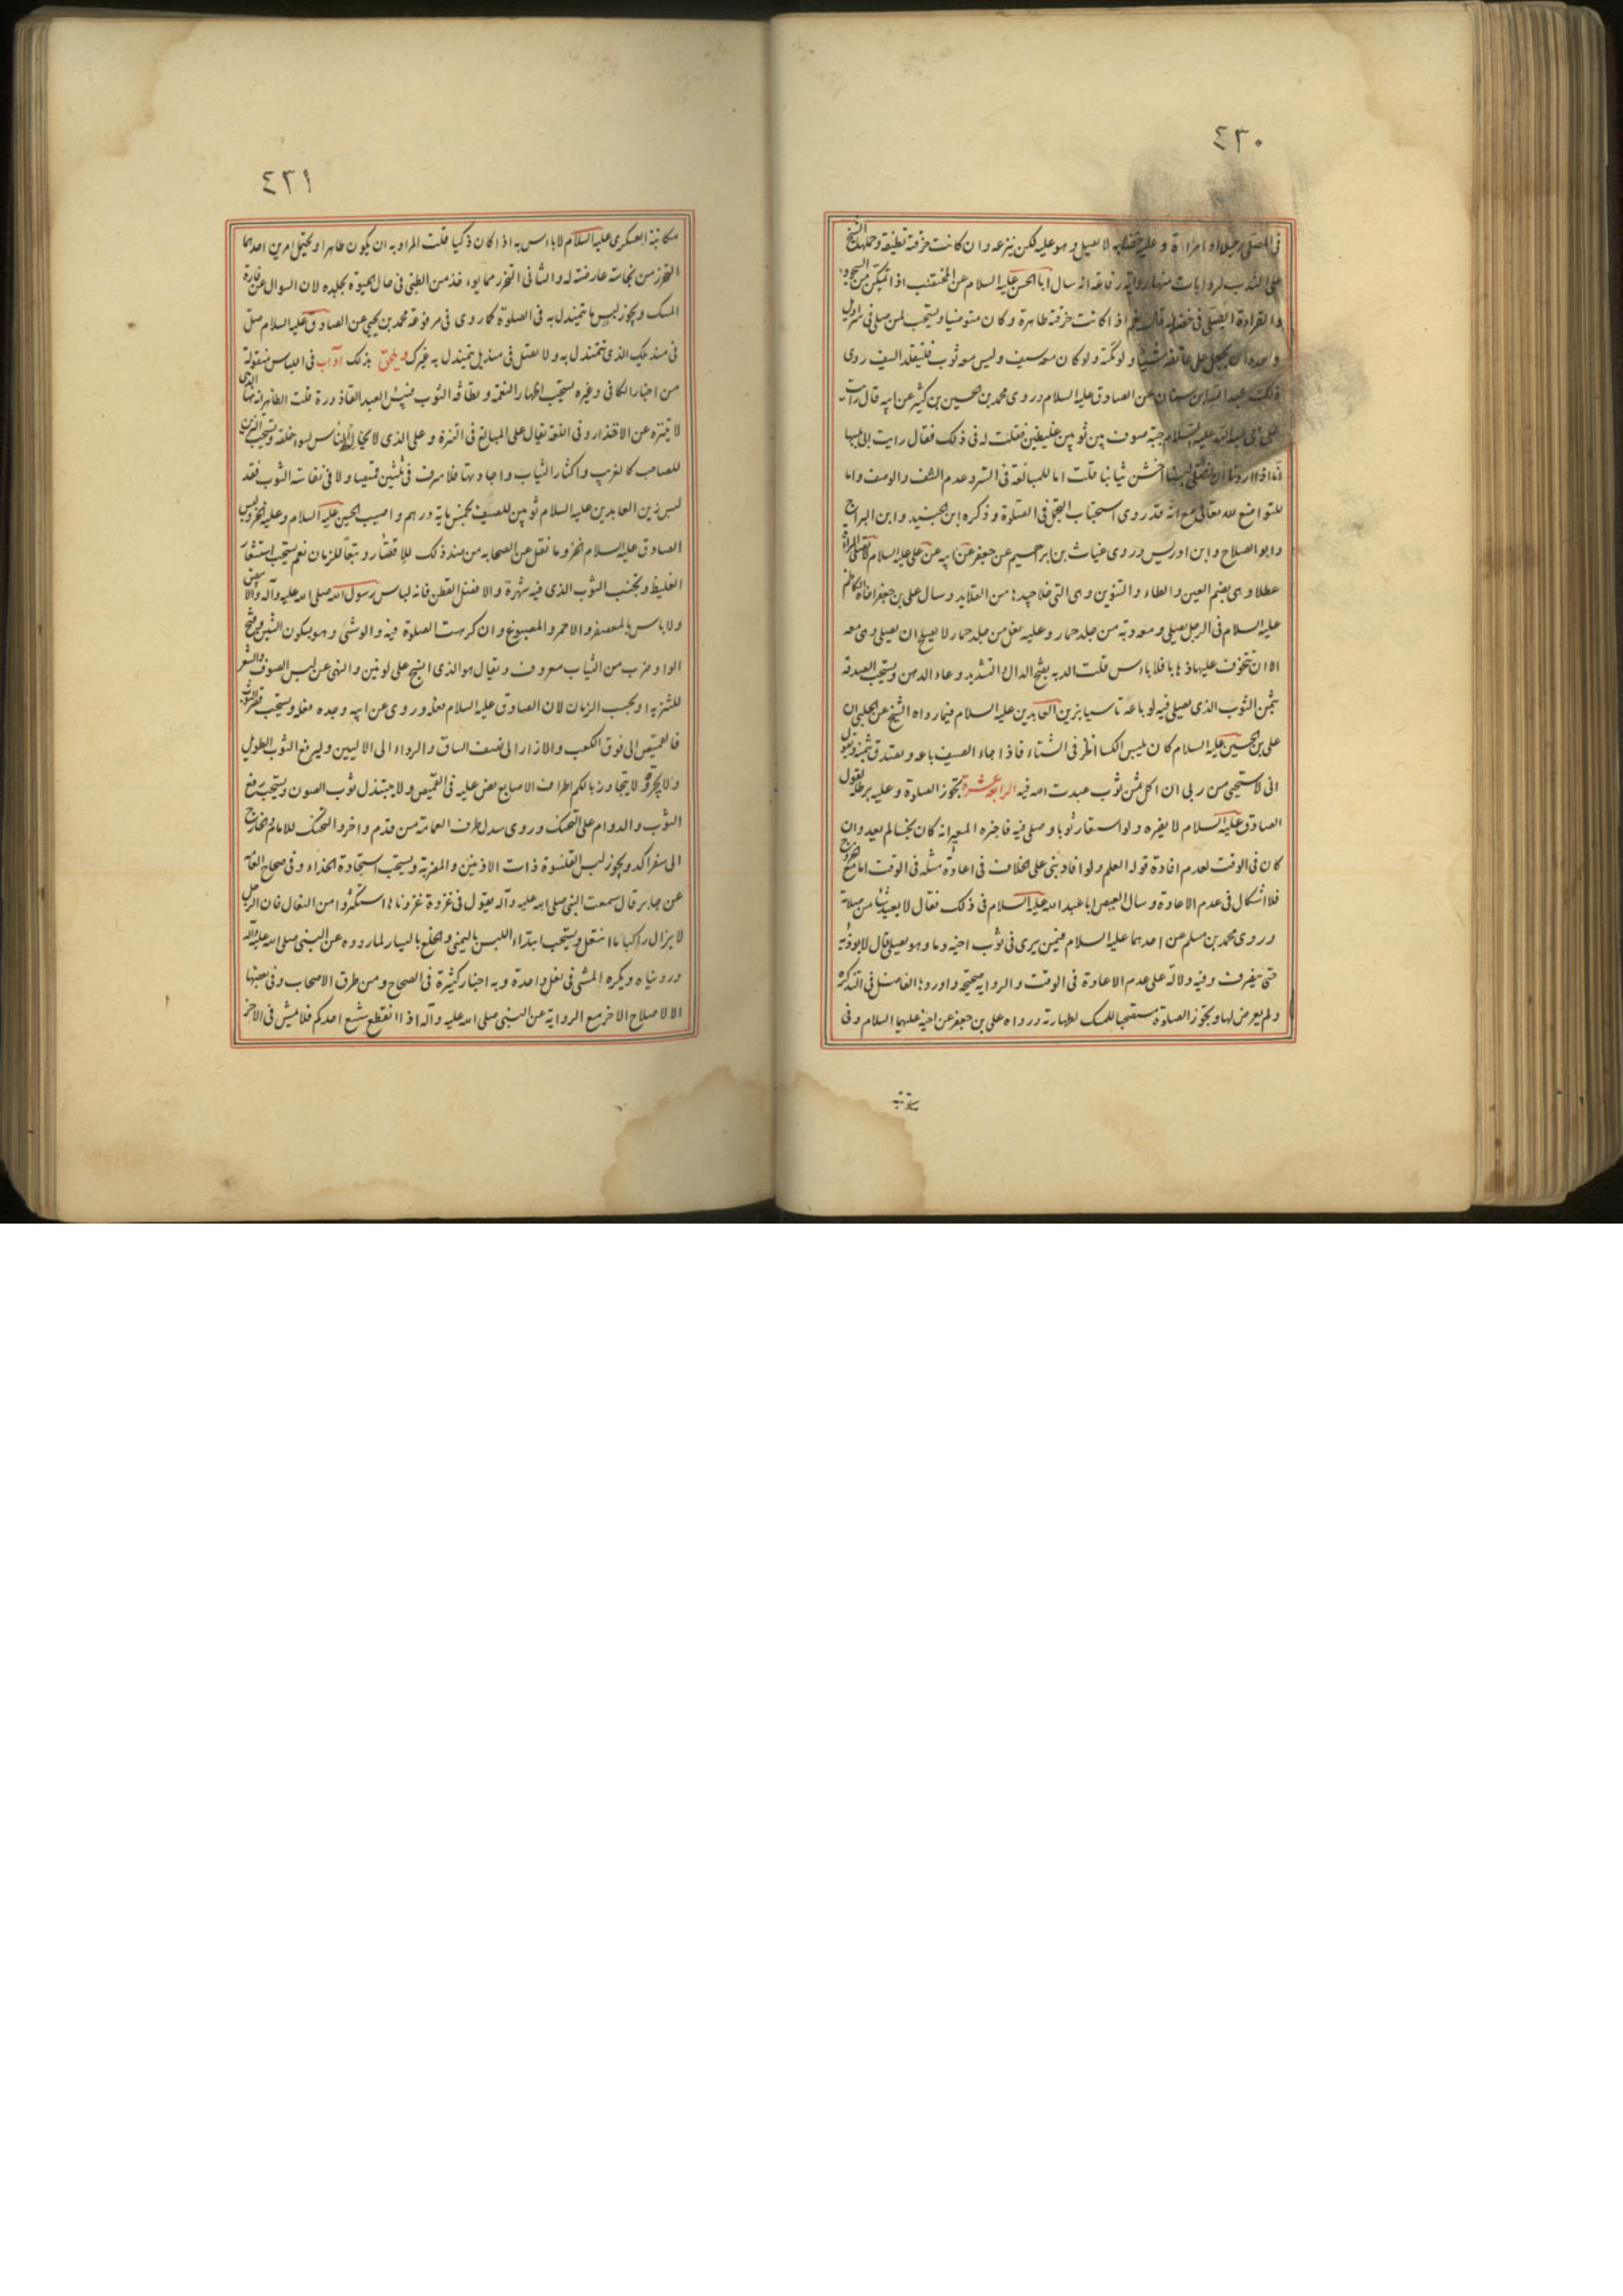 ٤٣٠
في المصلى رجلا او امراة و عليه خضابه لا يصلى و هو عليه لكن ينزعه و ان كانت خرقته نظيفة و حملها الشيخ
على الندب لروايات منها رواية رفاعة انه سال ابا الحسن عليه السلام عن المختضب اذا تمكن من السجود
والقراءة ايصلى في خضابه قال نعم اذا كانت خرقته طاهرة و كان متوضيا و يستحب لمن صلى في سراويل
وحده ان يجعل على عاتقه شيئا و لو تكة و لو كان معه سيف و ليس معه ثوب فليتقلد السيف روى
ذلك عبد الله ابن سنان عن الصادق عليه السلام و روى محمد بن حسين بن كثير عن ابيه قال رايت
على ابي عبد الله عليه السلام جبة صوف بين ثوبين غليظين فقلت له في ذلك فقال رايت ابى يلبسها
انا اذا اردنا ان نصلى لبسنا اخشن ثيابنا قلت اما للمبالغة في الستر و عدم الشف و الوصف و اما
للتواضع لله تعالى مع انه قد روى استحباب التجمل في الصلوة و ذكره ابن الجنيد و ابن البراج
و ابو الصلاح و ابن ادريس و روى غياث بن ابراهيم عن جعفر عن ابيه عن علي عليه السلام لا تصلى المراة
عطلا و هي بضم العين و الطاء و التنوين و هي التي خلا جيدها من القلايد و سال علي بن جعفر اخاه الكاظم
عليه السلام في الرجل يصلى و معه دبة من جلد حمار و عليه نعل من جلد حمار لا يصلح ان يصلى و هي معه
الا ان يتخوف عليها ذهابا فلا باءس قلت الدبه بفتح الدال و التشديد وعاء الدهن و يستحب الصدقه
بثمن الثوب الذي يصلى فيه لو باعه تاسيا بزين العابدين عليه السلام فيما رواه الشيخ عن الحلبي ان
علي بن الحسين عليه السلام كان يلبس الكسا الخز في الشتاء فاذا جاء الصيف باعه و تصدق بثمنه و يقول
اني لاستحيي من ربي ان اكل ثمن ثوب عبدت الله فيه الرابعة عشرة تجوز الصلوة و عليه برطله لقول
الصادق عليه السلام لا يضره و لو استعار ثوبا و صلى فيه فاخبره المعير انه كان نجسا لم يعد و ان
كان في الوقت لعدم افادة قوله العلم و لو افاد بنى على الخلاف في اعادة مثله في الوقت اما مع خروج
فلا اشكال في عدم الاعادة و سال العيص ابا عبد الله عليه السلام في ذلك فقال لا يعيد شيئا من صلاته
و روى محمد بن مسلم عن احدهما عليه السلام فيمن يرى في ثوب اخيه دما و هو يصلى قال لا يوذنه
حتى ينصرف و فيه دلالة على عدم الاعادة في الوقت و الرواية صحيحة و اوردها الفاضل في التذكره
و لم يعرض لها و تجوز الصلوة مستصحبا للمسك لطهارته و رواه علي بن جعفر عن اخيه عليهما السلام و في
٤٣١
مكاتبة العسكري عليه السلام لا باءس به اذا كان ذكيا قلت المراد به ان يكون طاهرا و يحتمل امرين احدهما
التحرز من نجاسة عارضة له و الثاني التحرز مما يوءخذ من الظبى في حال الحيوة بجلده لان السوال عن فارة
المسك و يجوز لبس ما يتمندل به في الصلوة كما روى في مرفوعة محمد بن يحيى عن الصادق عليه السلام صل
في منديلك الذي تتمندل به و لا تصل في منديل يتمندل به غيرك و يلحق بذلك آداب في اللباس منقولة
من اخبار الكافى و غيره يستحب اظهار النعمة و نظافة الثوب فبئس العبد القاذورة قلت الظاهر انه هنا الذي
لا يتنزه عن الاقذار و في اللغة يقال على المبالغ في التنزه و على الذي لا يخالط الناس لسوء خلقه و يستحب التزين
للصاحب كالغريب و اكثار الثياب و اجادتها فلا سرف في ثلثين قميصا و لا في نفاسة الثوب فقد
لبس زين العابدين عليه السلام ثوبين للصيف بخمس مايه درهم و اصيب الحسين عليه السلام و عليه الخز و لبس
الصادق عليه السلام الخز و ما نقل عن الصحابه من ضد ذلك للاقتار و تبعا للزمان نعم يستحب استشعار
الغليظ و تجنب الثوب الذي فيه شهرة و الافضل القطن فانه لباس رسول الله صلى الله عليه و آله و الابيض
و لا باس بالمعصفر و الاحمر و المصبوغ و ان كرهت الصلوة فيه و الوشى و هو بسكون الشين و فتح
الواو ضرب من الثياب معروف و يقال هو الذي النسج على لونين و النهى عن لبس الصوف و الشعر
للتنزيه او بحسب الزمان لان الصادق عليه السلام فعله و روى عن ابيه و جده فعله و يستحب قصر الثوب
فالقميص الى فوق الكعب و الازار الى نصف الساق و الرداء الى الاليين و ليرفع الثوب الطويل
و لا يجره و لا يتجاوز بالكم اطراف الاصابع نص عليه في القميص و لا يبتذل ثوب الصون و يستحب رقع
الثوب و الدوام على التحنك و روى سدل طرف العمامة من قدم و اخر و التحنك للامام و الخارج
الى سفر اكد و يجوز لبس القلنسوة ذات الاذنين و المضربة و يستحب استجادة الحذاء و في صحاح العامه
عن جابر قال سمعت النبي صلى الله عليه و آله يقول في غزوة غزوناها استكثروا من النعال فان الرجل
لا يزال راكبا ما انتعل و يستحب ابتداء اللبس باليمنى و الخلع باليسار لما رووه عن النبي صلى الله عليه و آله
و رويناه و يكره المشى في نعل واحدة و به اخبار كثيرة في الصحاح و من طرق الاصحاب و في بعضها
الا لاصلاح الاخر مع الرواية عن النبي صلى الله عليه و آله اذا انقطع شسع احدكم فلا يمش في الاخر